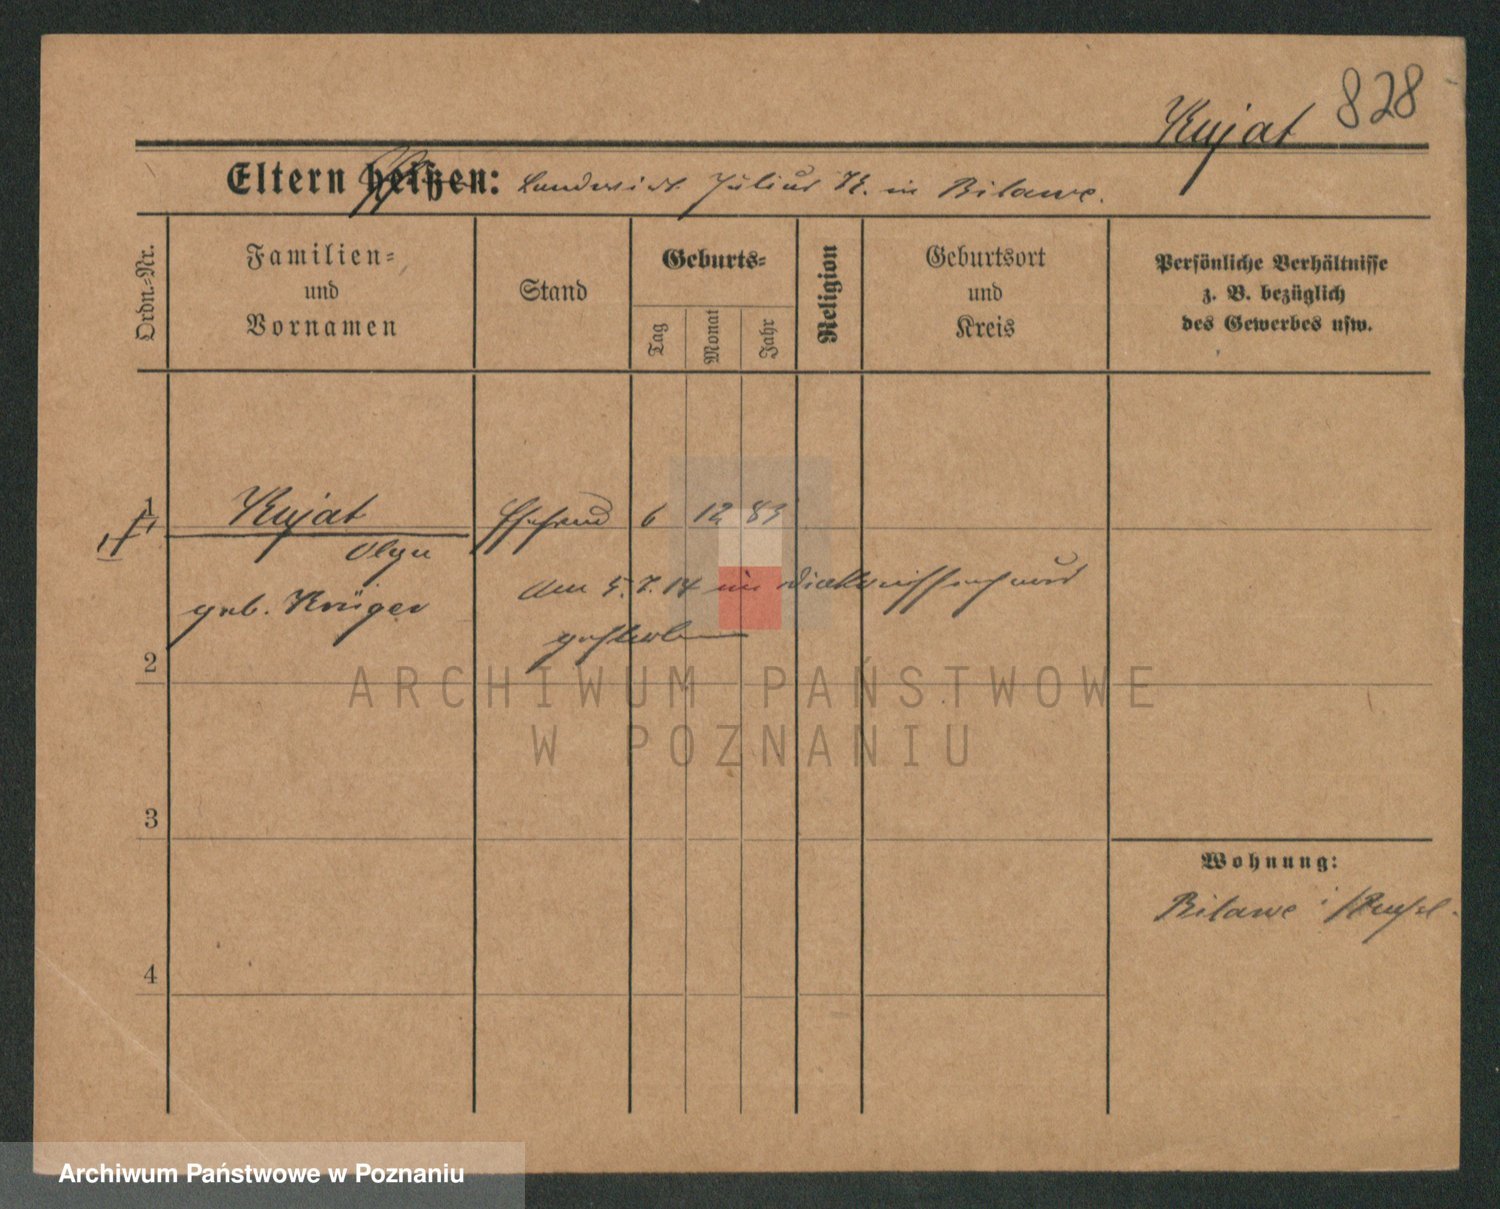 828
Kujat
Eltern heißen: Landwirt Julius K. in Bilawe.
Ordn.-Nr.
Familien-
und
Vornamen
Stand
Geburts-
Tag
Monat
Jahr
Religion
Geburtsort
und
Kreis
Persönliche Verhältnisse
z. B. bezüglich
des Gewerbes usw.
1
Kujat
Ehefrau
6 12 83
Olga
geb. Krüger
am 5.7.14 im
gestorben
2
ARCHIWUM PAŃSTWOWE
W POZNANIU
3
Wohnung:
Bilawe
4
Archiwum Państwowe w Poznaniu